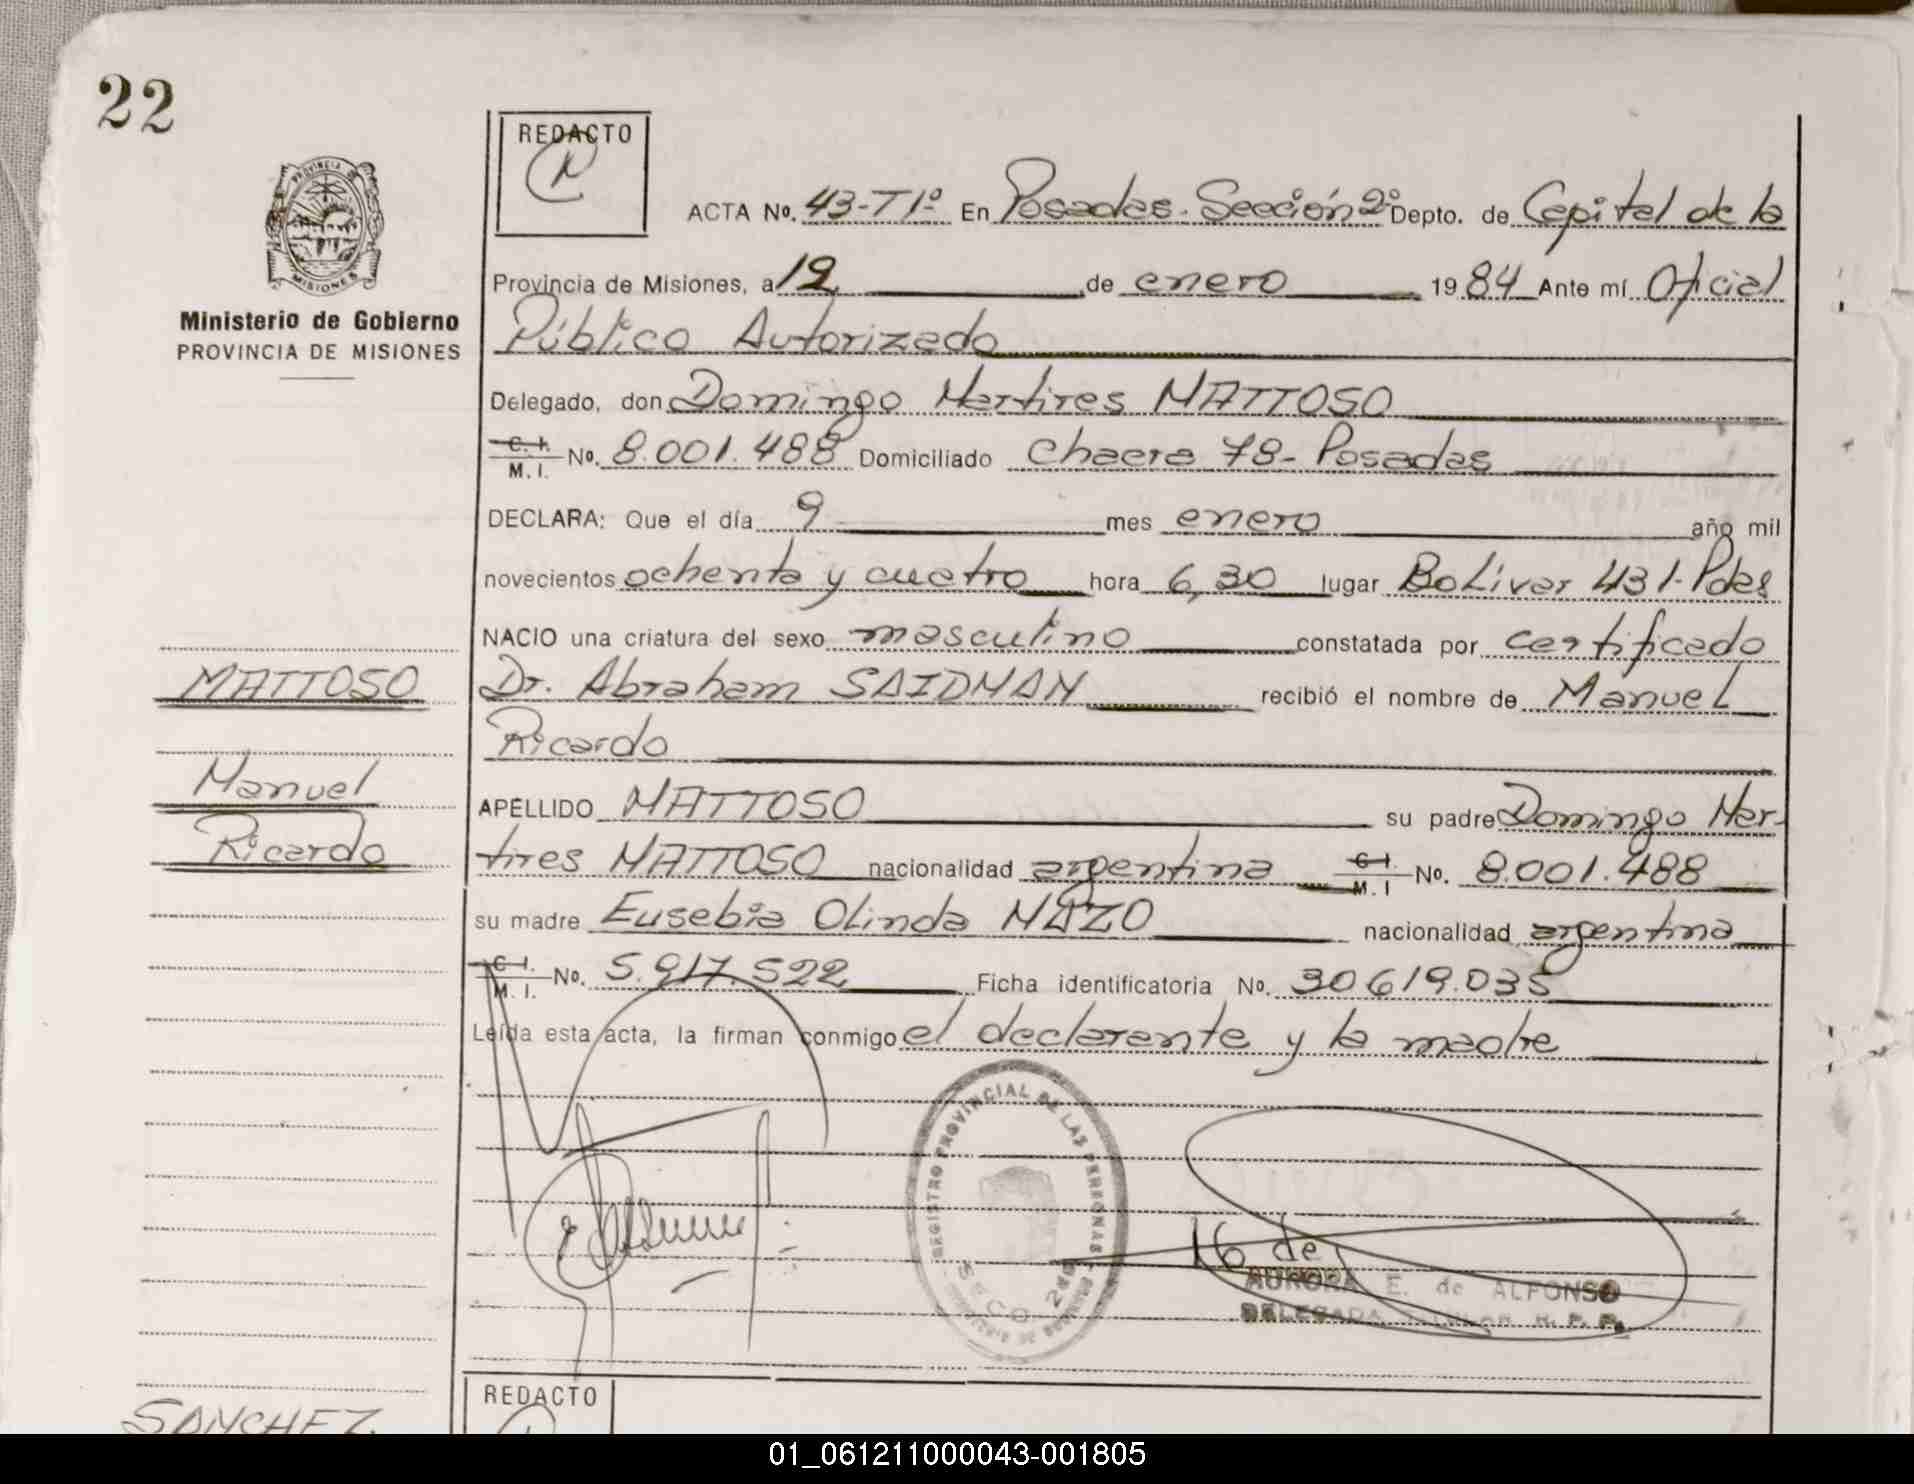 22
REDACTO
PROVINCIA DE
MISIONES
Ministerio de Gobierno
PROVINCIA DE MISIONES
ACTA No. 43-T1º En Posadas. Sección 2º Depto. de Capital de la
Provincia de Misiones, a 12 de enero 1984 Ante mí Oficial
Público Autorizado
Delegado, don Domingo Martires MATTOSO
C. I. M. I. No. 8.001.488 Domiciliado Chacra 78- Posadas
DECLARA: Que el día 9 mes enero año mil
novecientos ochenta y cuatro hora 6,30 lugar BoLivar 431-Pdas
NACIO una criatura del sexo masculino constatada por certificado
MATTOSO
Dr. Abraham SAIDMAN recibió el nombre de ManueL
Ricardo
Manuel
APELLIDO MATTOSO su padre Domingo Mar-
Ricardo
tires MATTOSO nacionalidad argentina C. I. M. I No. 8.001.488
su madre Eusebia Olinda MAZO nacionalidad argentina
C. I. M. I. No. 5.917.522 Ficha identificatoria No. 30619.035
Leída esta acta, la firman conmigo el declarante y la madre
REGISTRO PROVINCIAL DE LAS PERSONAS
16 de
AURORA E. de ALFONSO
DELEGADA TITULAR R. P. P.
REDACTO
SANCHEZ
01_061211000043-001805